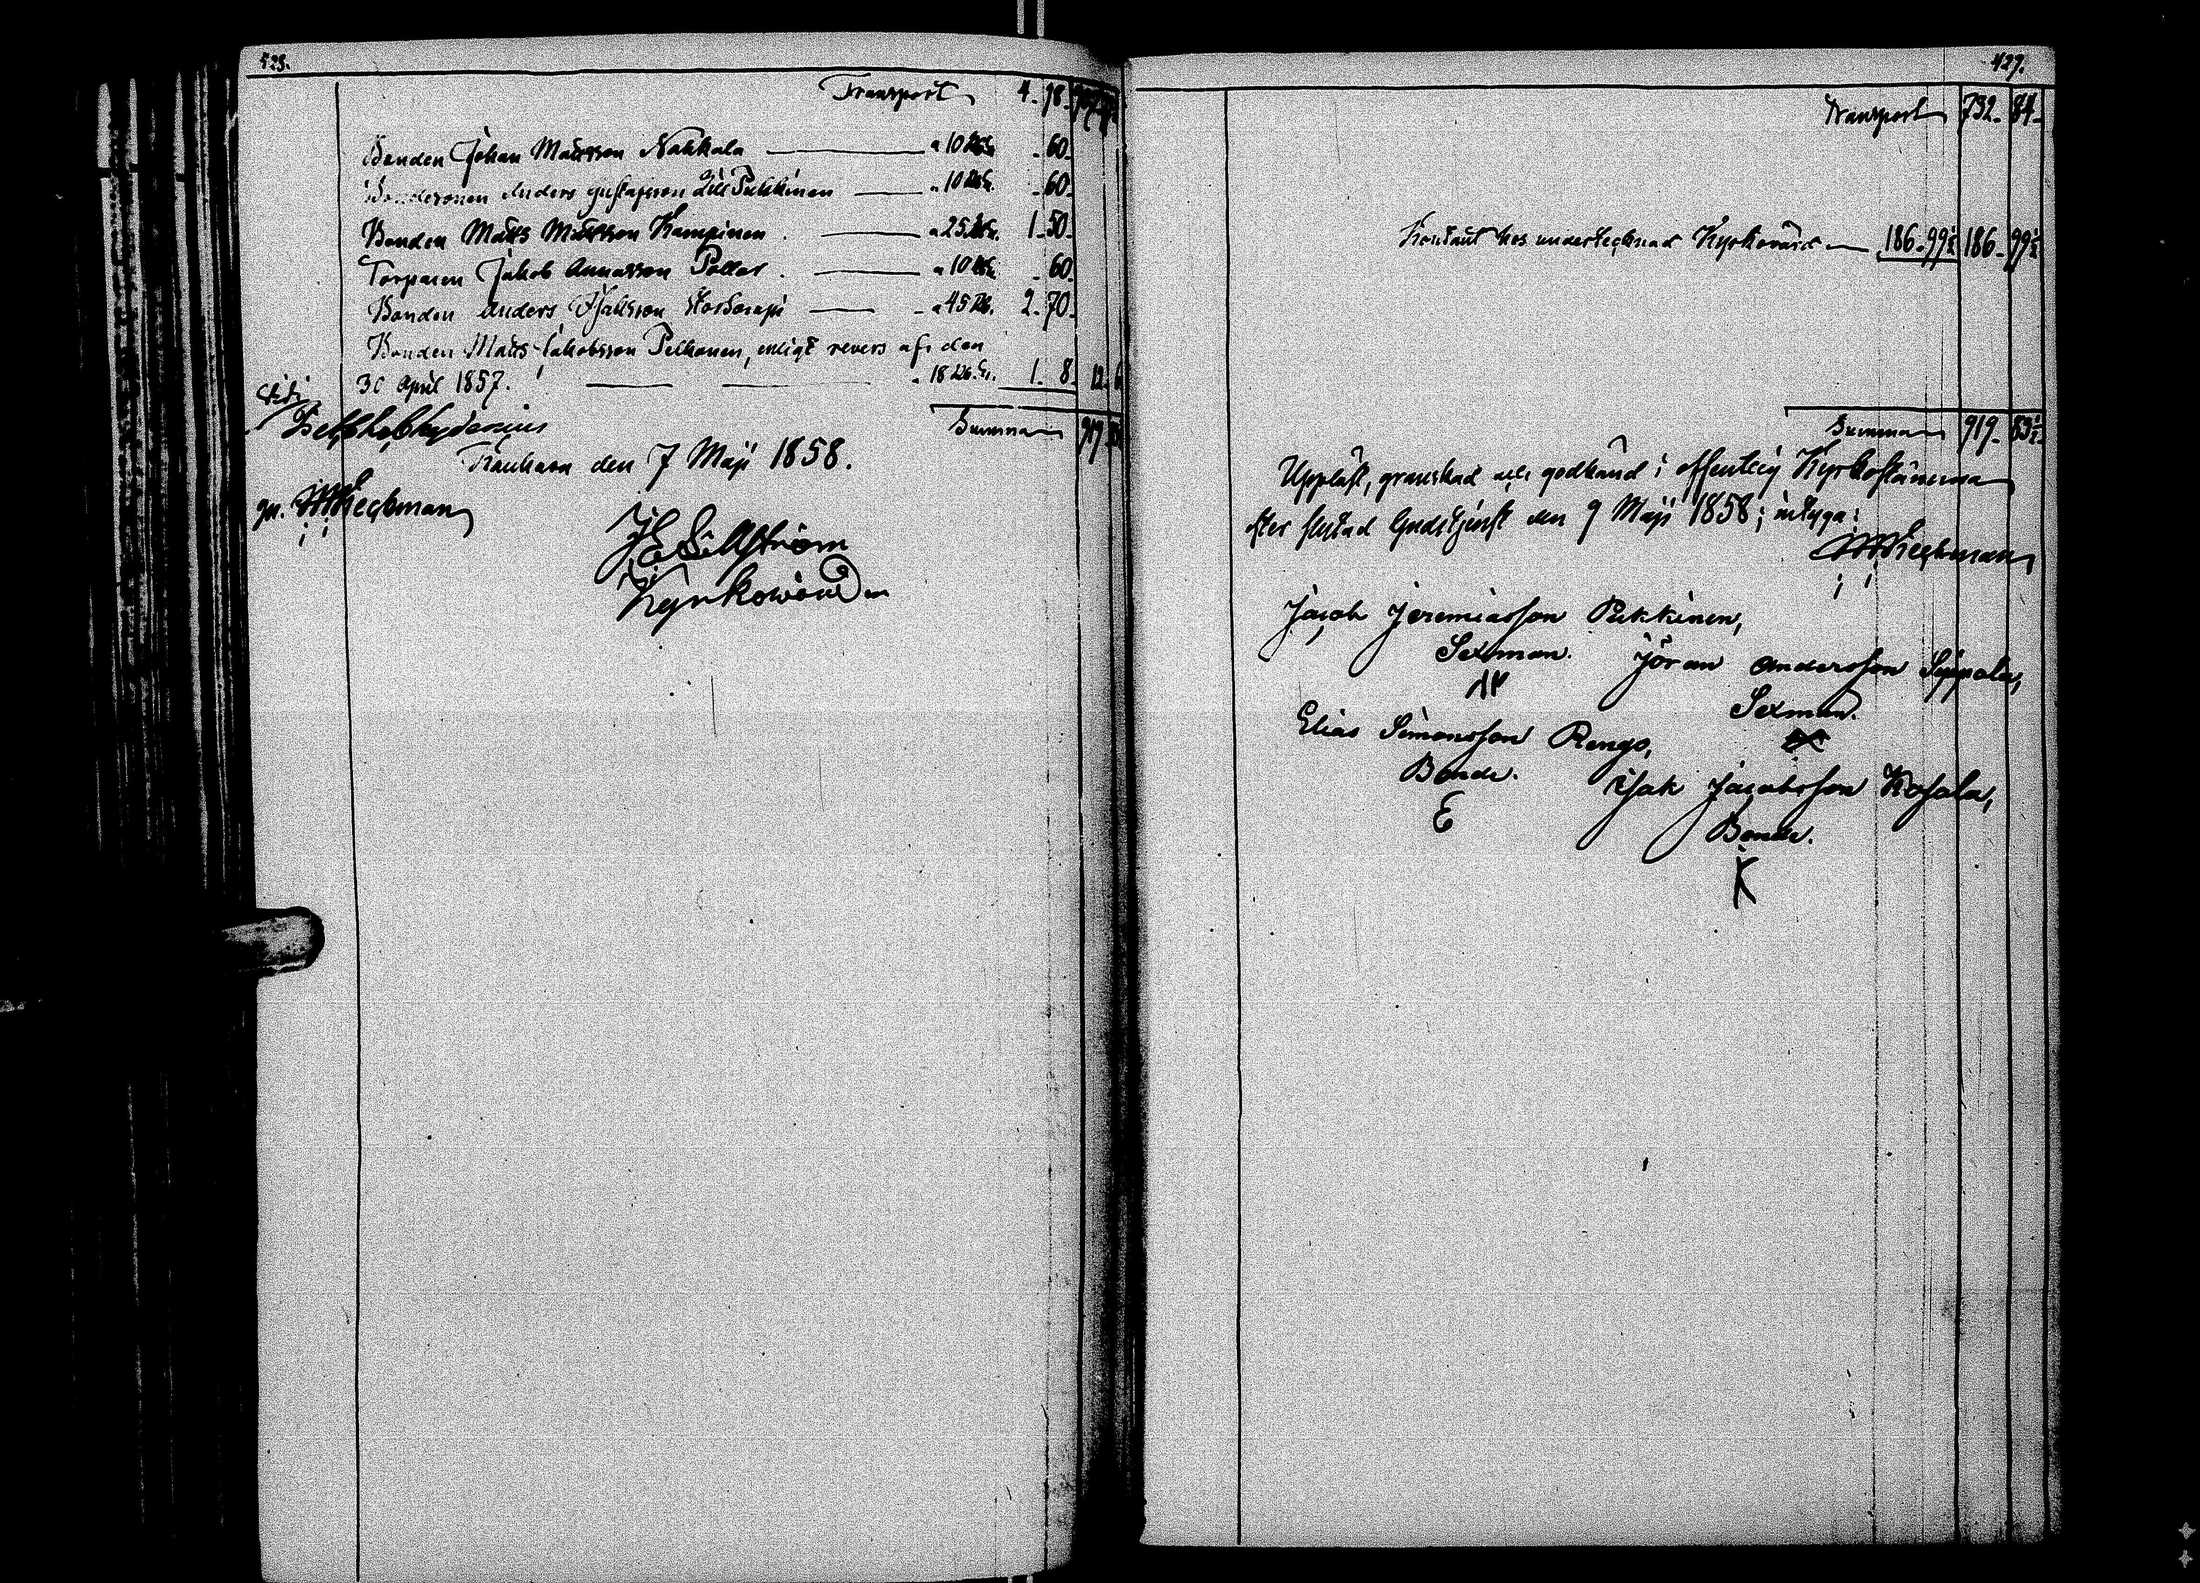 Transport 4. 98.
Bonden Johan Mattsson Nahkala " 10 - 60.
Bondesonen Anders Gustafsson Lill Pukkinen " 10 - 60.
Bonden Matts Mattsson Kampinen " 25 1. 50.
Torparen Jakob Annasson Pollar " 10 - 60.
Bonden Anders Isaksson " 45 2. 70.
Bonden Matts Jakobsson Pelkonen, enligt revers af den
30 April 1857. " 18 1. 8. 12. 6
Summa 919
Kauhava den 7 Maji 1858.
Kyrkowärd
429.
Transport 732. 84.
Kontant hos undertecknad Kyrkovärd 186. 99½ 186. 99½
Summa 919. 83½
Uppläst, granskad och godkänd i offentlig Kyrkostämma
efter slutad Gudstjenst den 9 Maji 1858; intyga:
Jacob Jeremiasson Pukkinen,
Sexman.
Jöran Andersson Seppola,
Sexman.
Elias Simonsson Rengo,
Bonde.
E
Isak Jacobsson Kojola,
Bonde.
K